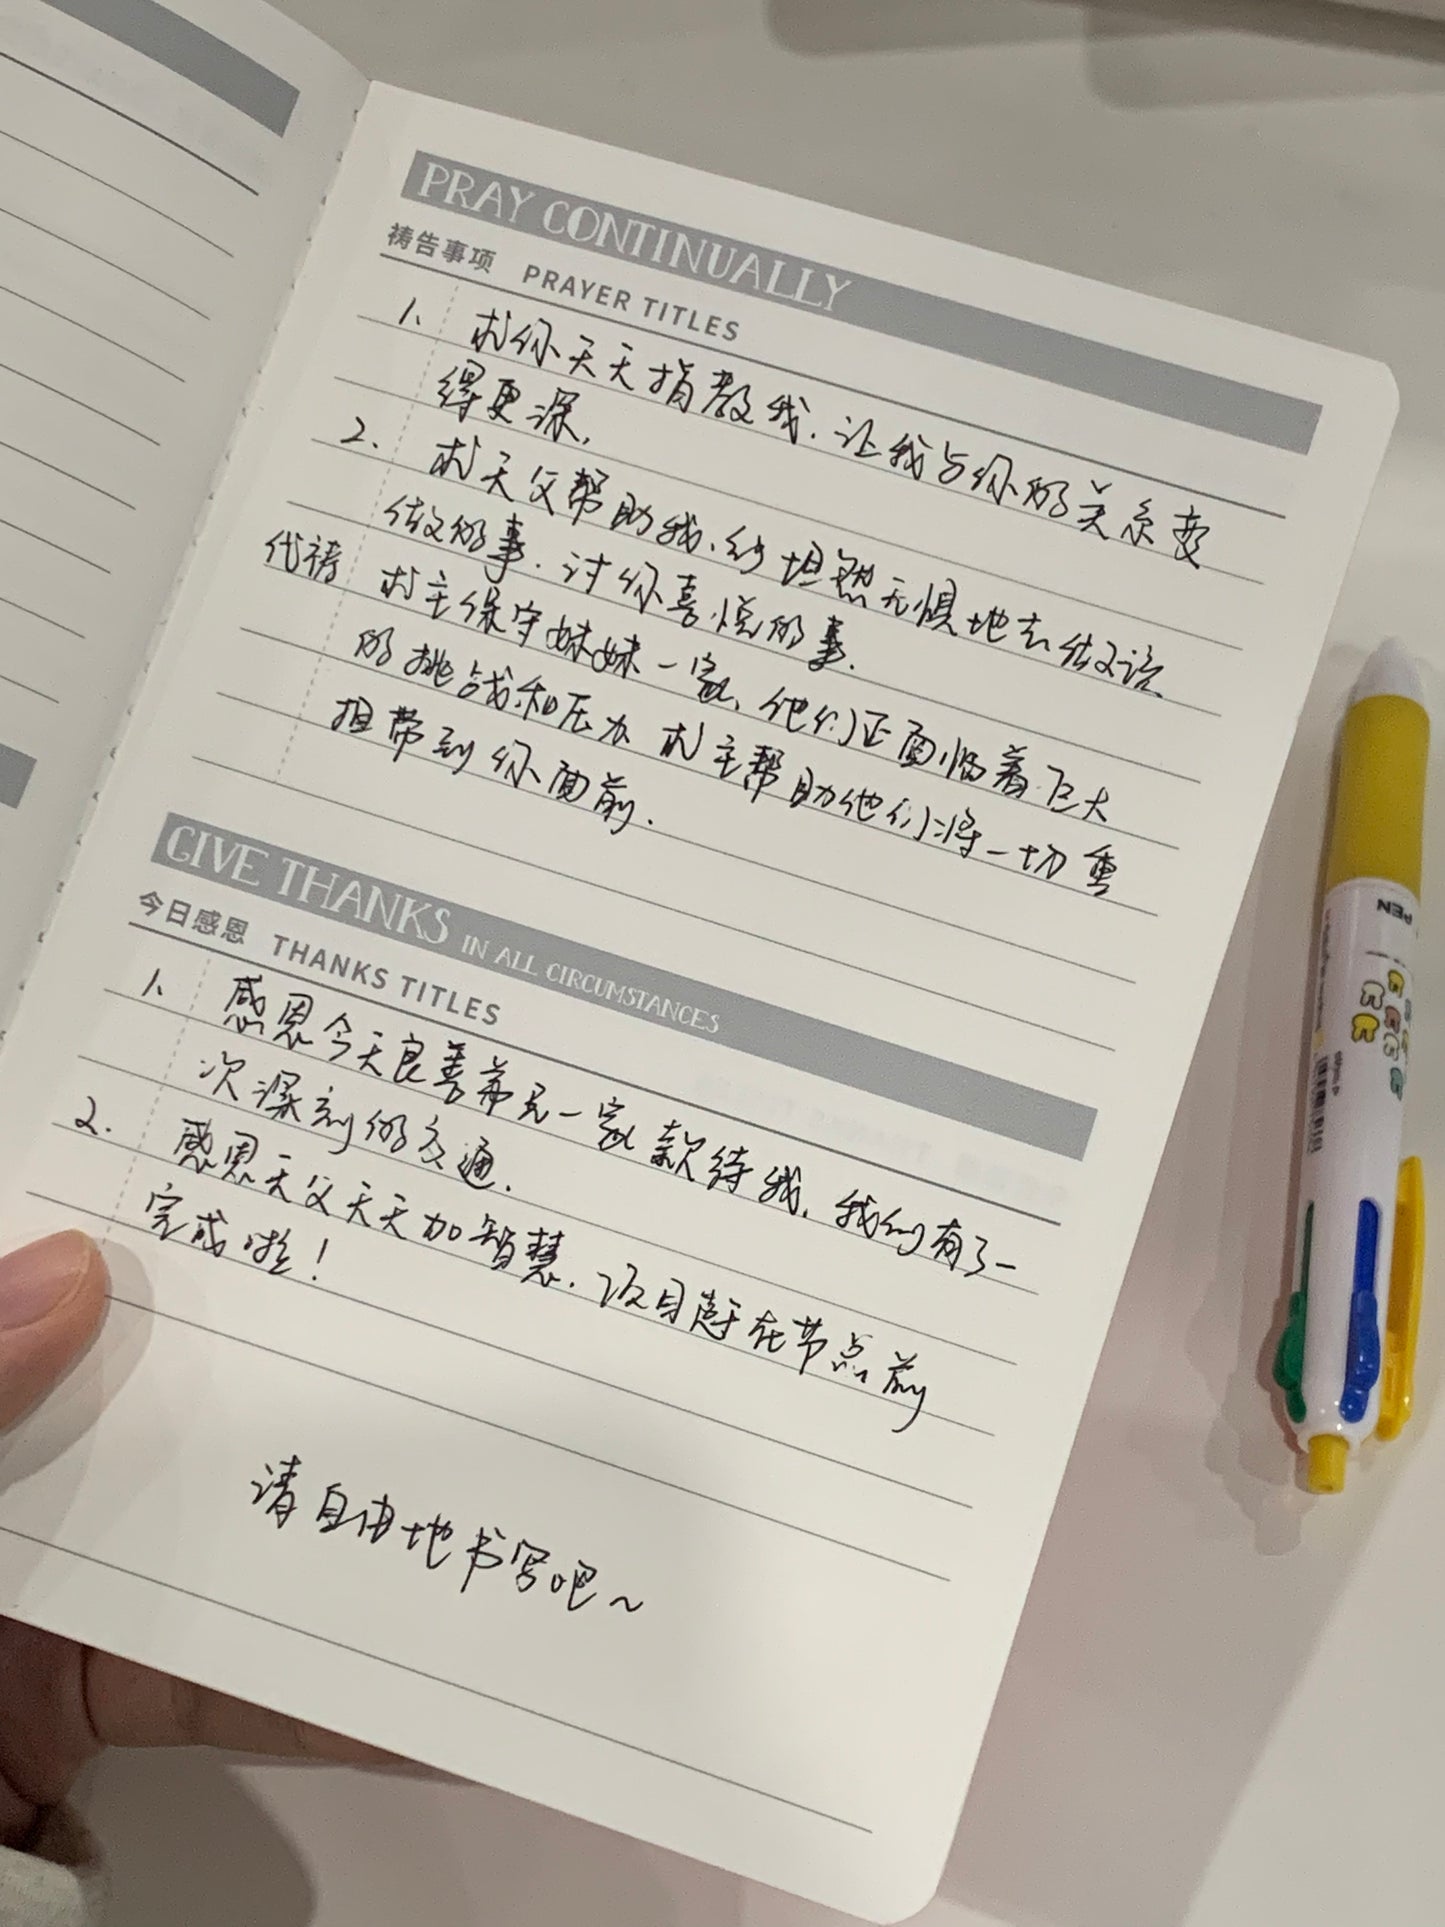 PRAY CONTINUALLY
祷告事项 PRAYER TITLES
1. 求你天天指教我.让我与你的关系变
得更深.
2. 求天父帮助我、能坦然无惧地去做该
做的事.讨你喜悦的事.
代祷 求主保守妹妹一家、他们正面临着巨大
的挑战和压力 求主帮助他们将一切重
担带到你面前.
GIVE THANKS IN ALL CIRCUMSTANCES
今日感恩 THANKS TITLES
1. 感恩今天良善弟兄一家款待我.我们有了一
次深刻的交通.
2. 感恩天父天天加智慧.项目终于在节点前
完成啦!
请自由地书写吧~
PEN